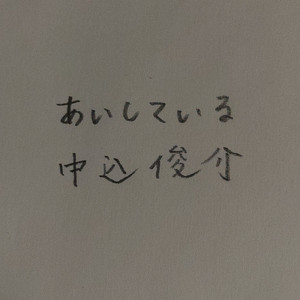 あいしている
申込俊介